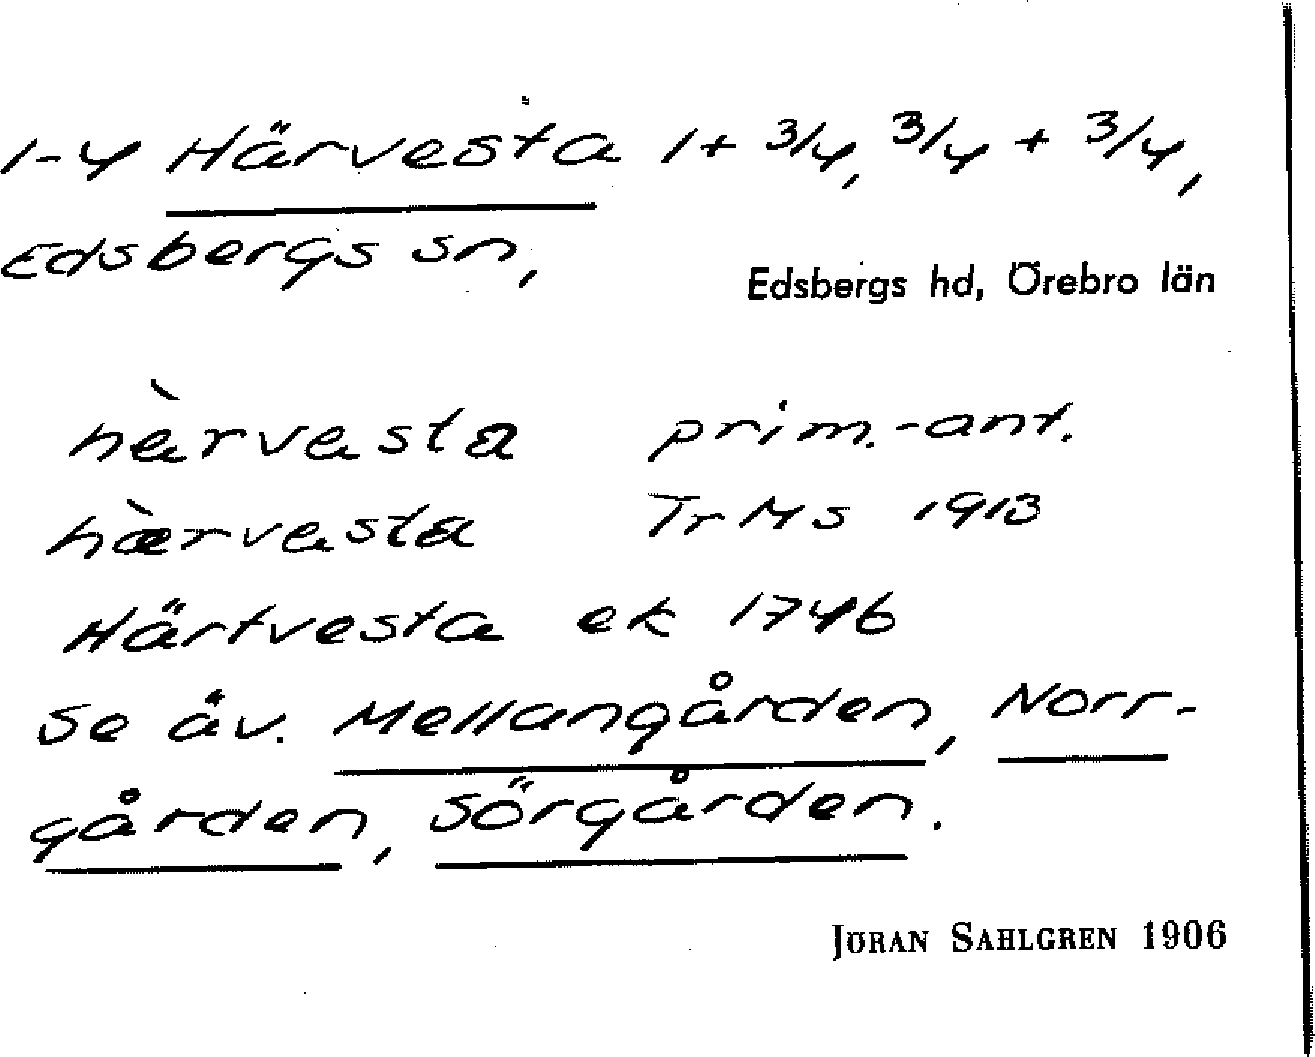 1-4 Härvesta 1+ 3/4, 3/4 + 3/4,
Edsbergs sn,
Edsbergs hd, Örebro län
hæ̀rvesta prim.-ant.
hæ̀rvesta TrMs 1913
Härtvesta ek 1746
Se äv. Mellangården, Norr-
gården, Sörgården.
JÖRAN SAHLGREN 1906